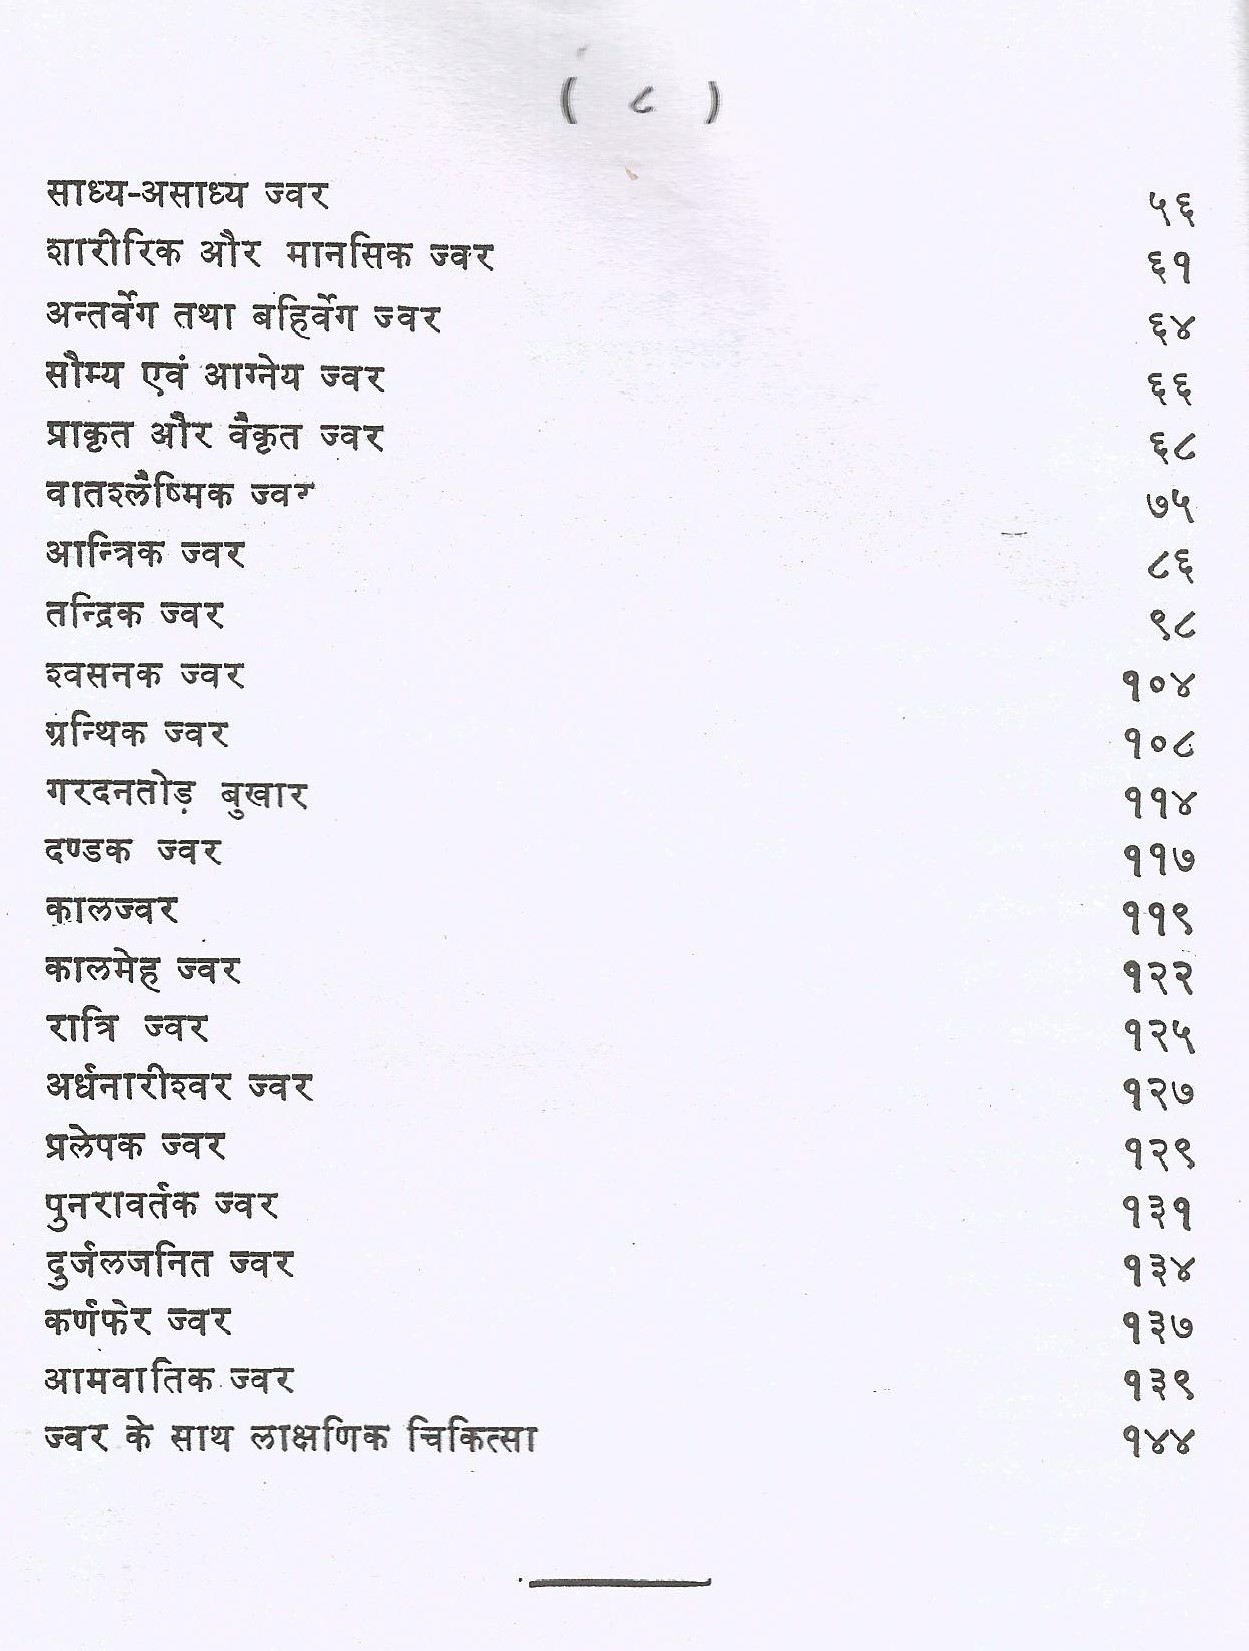 ( ८ )
साध्य-असाध्य ज्वर ५६
शारीरिक और मानसिक ज्वर ६१
अन्तर्वेग तथा बहिर्वेग ज्वर ६४
सौम्य एवं आग्नेय ज्वर ६६
प्राकृत और वैकृत ज्वर ६८
वातश्लैष्मिक ज्वर ७५
आन्त्रिक ज्वर ८६
तन्द्रिक ज्वर ९८
श्वसनक ज्वर १०४
ग्रन्थिक ज्वर १०८
गरदनतोड़ बुखार ११४
दण्डक ज्वर ११७
कालज्वर ११९
कालमेह ज्वर १२२
रात्रि ज्वर १२५
अर्धनारीश्वर ज्वर १२७
प्रलेपक ज्वर १२९
पुनरावर्तक ज्वर १३१
दुर्जलजनित ज्वर १३४
कर्णफेर ज्वर १३७
आमवातिक ज्वर १३९
ज्वर के साथ लाक्षणिक चिकित्सा १४४